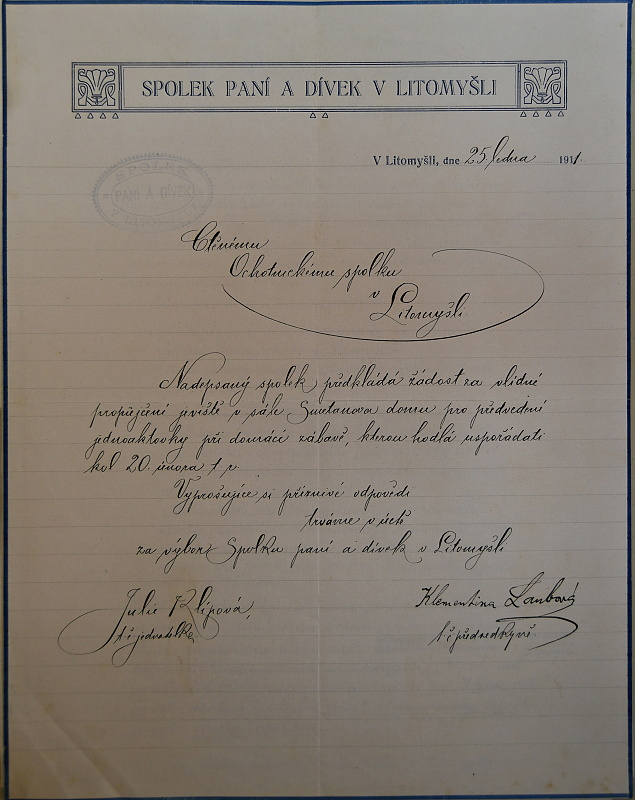 SPOLEK PANÍ A DÍVEK V LITOMYŠLI
V Litomyšli, dne 25. ledna 1911.
SPOLEK
PANÍ A DÍVEK
Ctěnému
Ochotnickému spolku
v
Litomyšli
Nadepsaný spolek předkládá žádost za vlídné
propůjčení jeviště v sále Smetanova domu pro předvedení
jednoaktovky při domácí zábavě, kterou hodlá uspořádati
kol 20. února t. r.
Vyprošujíce si příznivé odpovědi
trváme v úctě
za výbor Spolku paní a dívek v Litomyšli
Julie Klipová, Klementina
t. č. jednatelka t. č. předsedkyně.